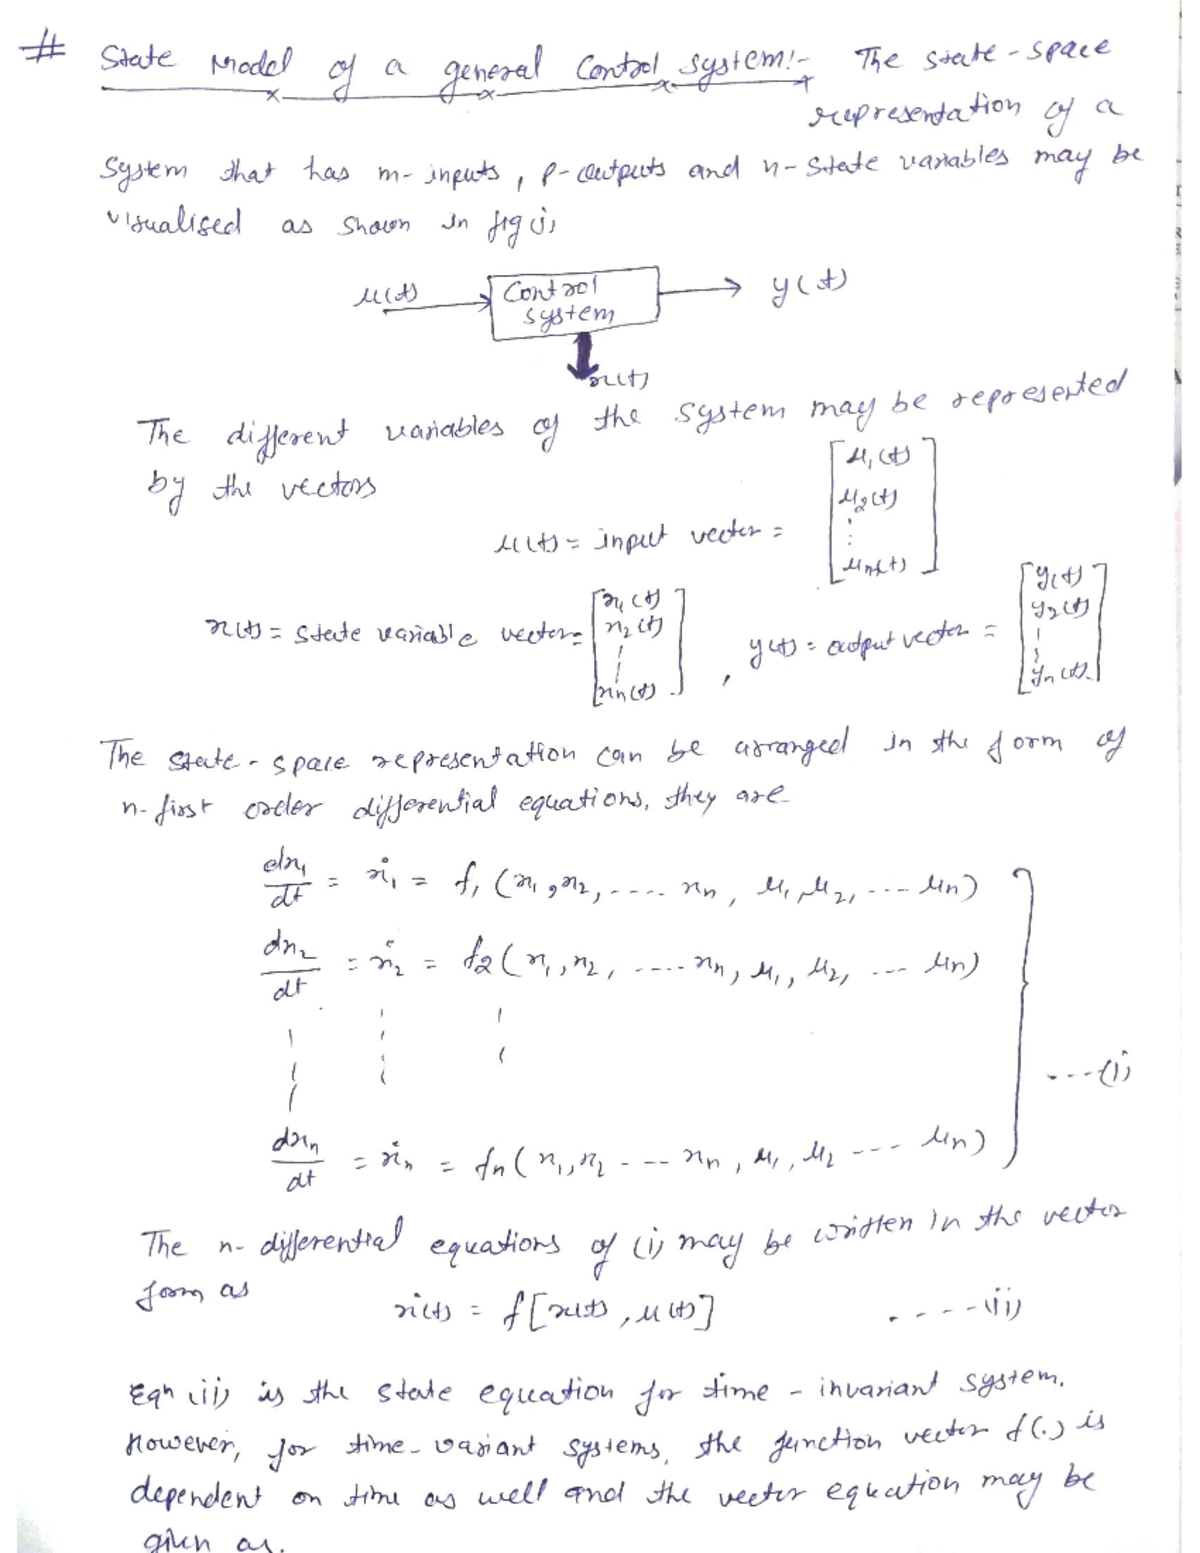 # State Model of a general Control system:- The state-space
representation of a
system that has m-inputs, p-outputs and n-state variables may be
visualised as shown in fig (i)
u(t) Control system y(t)
x(t)
The different variables of the system may be represented
by the vectors
u(t) = input vector = [u₁(t) u₂(t) ⋮ uₘ(t)]
x(t) = state variable vector = [x₁(t) x₂(t) ⋮ xₙ(t)] , y(t) = output vector = [y₁(t) y₂(t) ⋮ yₙ(t)]
The state-space representation can be arranged in the form of
n-first order differential equations, they are
dx₁/dt = ẋ₁ = f₁ (x₁, x₂, ---- xₙ, u₁, u₂, --- uₙ)
dx₂/dt = ẋ₂ = f₂ (x₁, x₂, ---- xₙ, u₁, u₂, --- uₙ)
---(i)
dxₙ/dt = ẋₙ = fₙ (x₁, x₂ --- xₙ, u₁, u₂ --- uₙ)
The n-differential equations of (i) may be written in the vector
form as
ẋ(t) = f[x(t), u(t)] ----(ii)
Eqn (ii) is the state equation for time-invariant system.
However, for time-variant systems, the function vector f(.) is
dependent on time as well and the vector equation may be
given as.